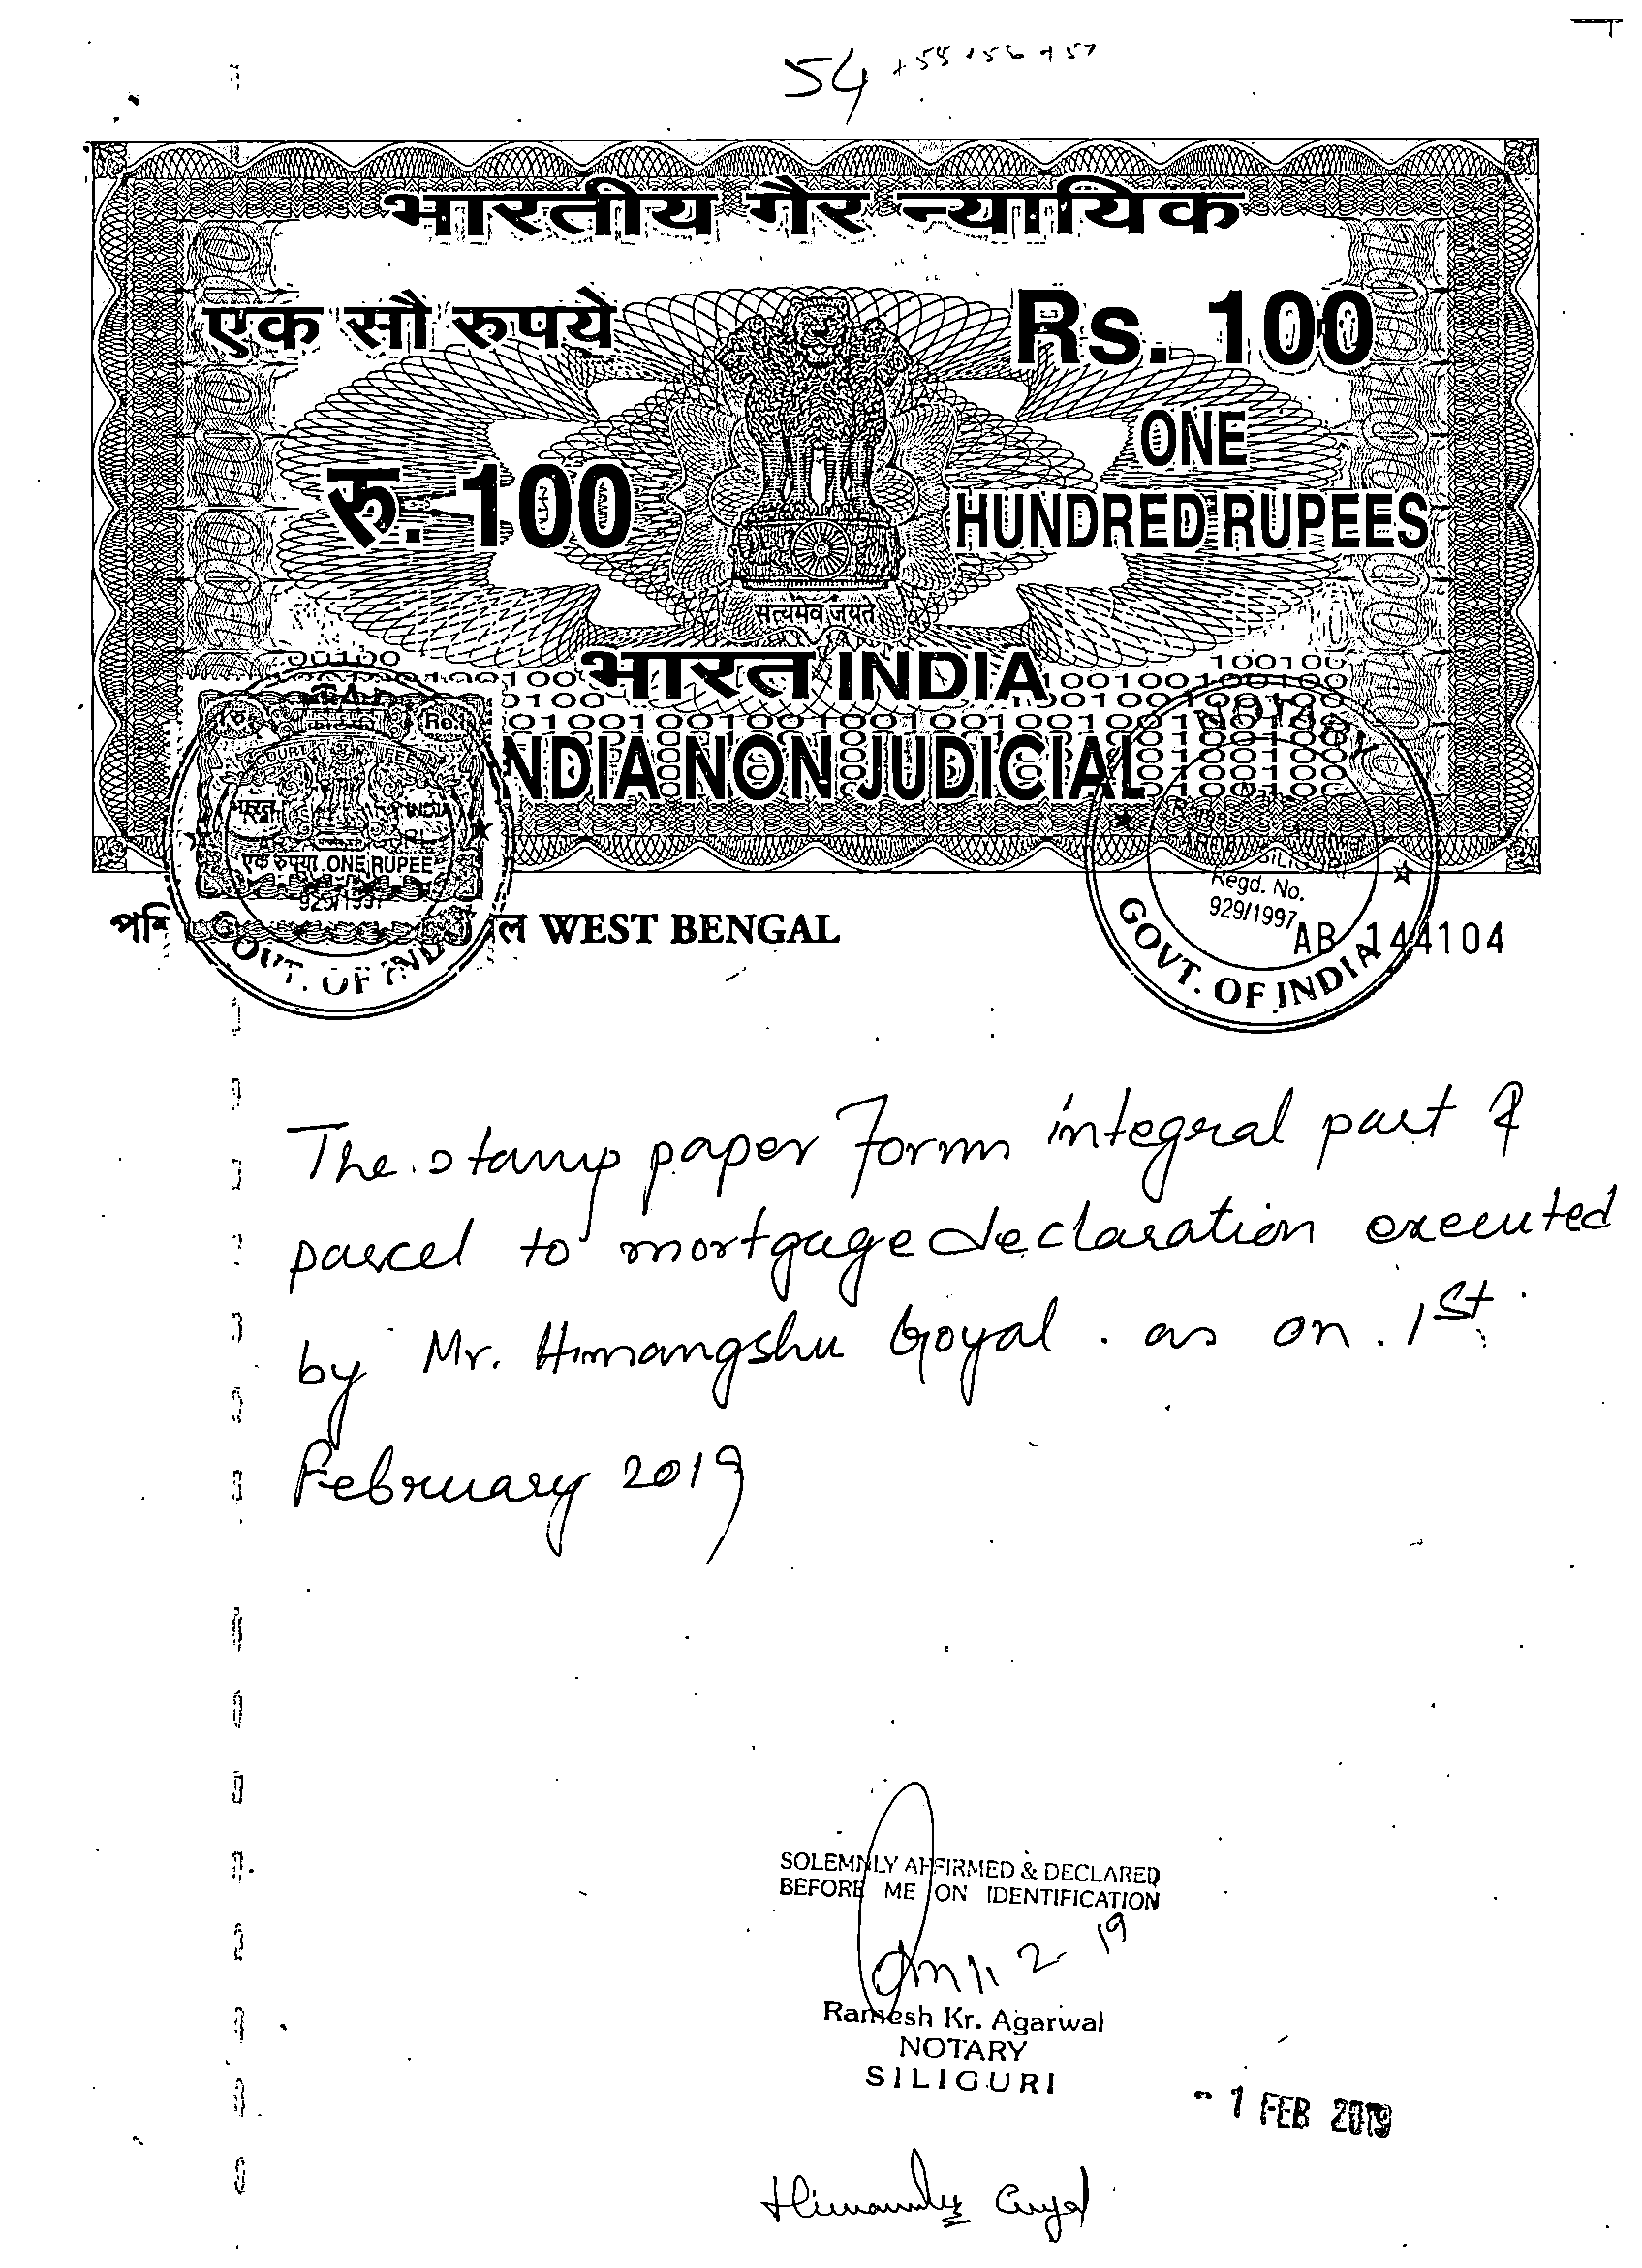 54 +55+56+57
भारतीय गैर न्यायिक
एक सौ रुपये
Rs. 100
रु. 100
ONE
HUNDRED RUPEES
सत्यमेव जयते
भारत INDIA
INDIA NON JUDICIAL
रु.1
Re.1
COURT FEE
भारत INDIA
एक रुपया ONE RUPEE
929/1997
GOVT. OF INDIA
NOTARY
SILIGURI
Regd. No.
929/1997
GOVT. OF INDIA
WEST BENGAL
AB 144104
The stamp paper Form integral part &
parcel to mortgage declaration executed
by Mr. Himangshu Goyal. as on. 1st
February 2019
SOLEMNLY AFFIRMED & DECLARED
BEFORE ME ON IDENTIFICATION
1 2 19
Ramesh Kr. Agarwal
NOTARY
SILIGURI
- 1 FEB 2019
Himanshu Goyal